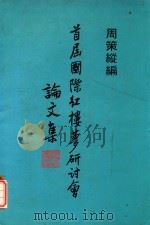 周策縱編
首屆國際紅樓夢研討會
論文集